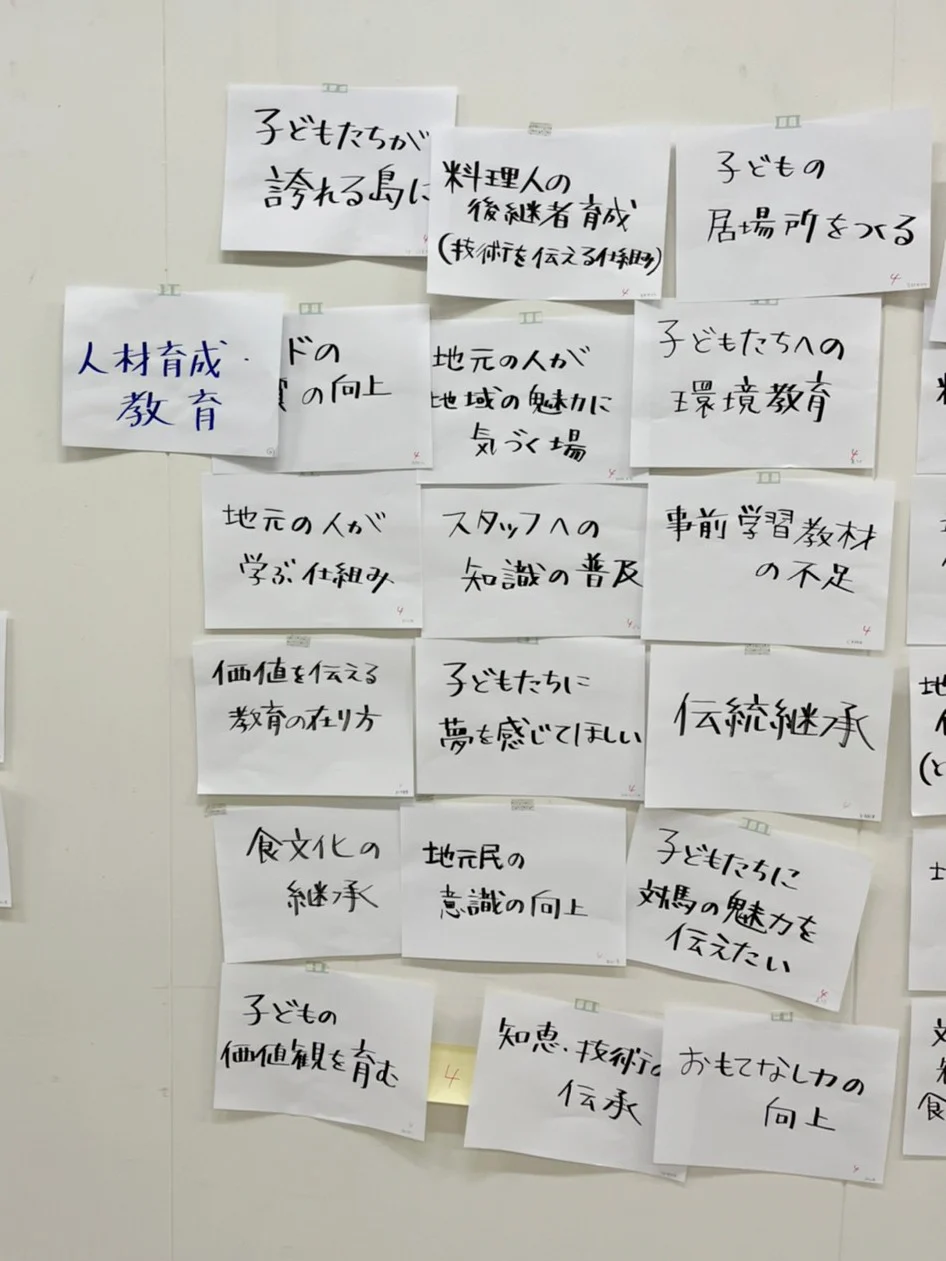 子どもたちが
誇れる島に
料理人の
後継者育成
(技術を伝える仕組み)
子どもの
居場所をつくる
人材育成・
教育
ドの
の向上
地元の人が
地域の魅力に
気づく場
子どもたちへの
環境教育
地元の人が
学ぶ仕組み
スタッフへの
知識の普及
事前学習教材
の不足
価値を伝える
教育の在り方
子どもたちに
夢を感じてほしい
伝統継承
食文化の
継承
地元民の
意識の向上
子どもたちに
対馬の魅力を
伝えたい
子どもの
価値観を育む
4
知恵・技術の
伝承
おもてなし力の
向上